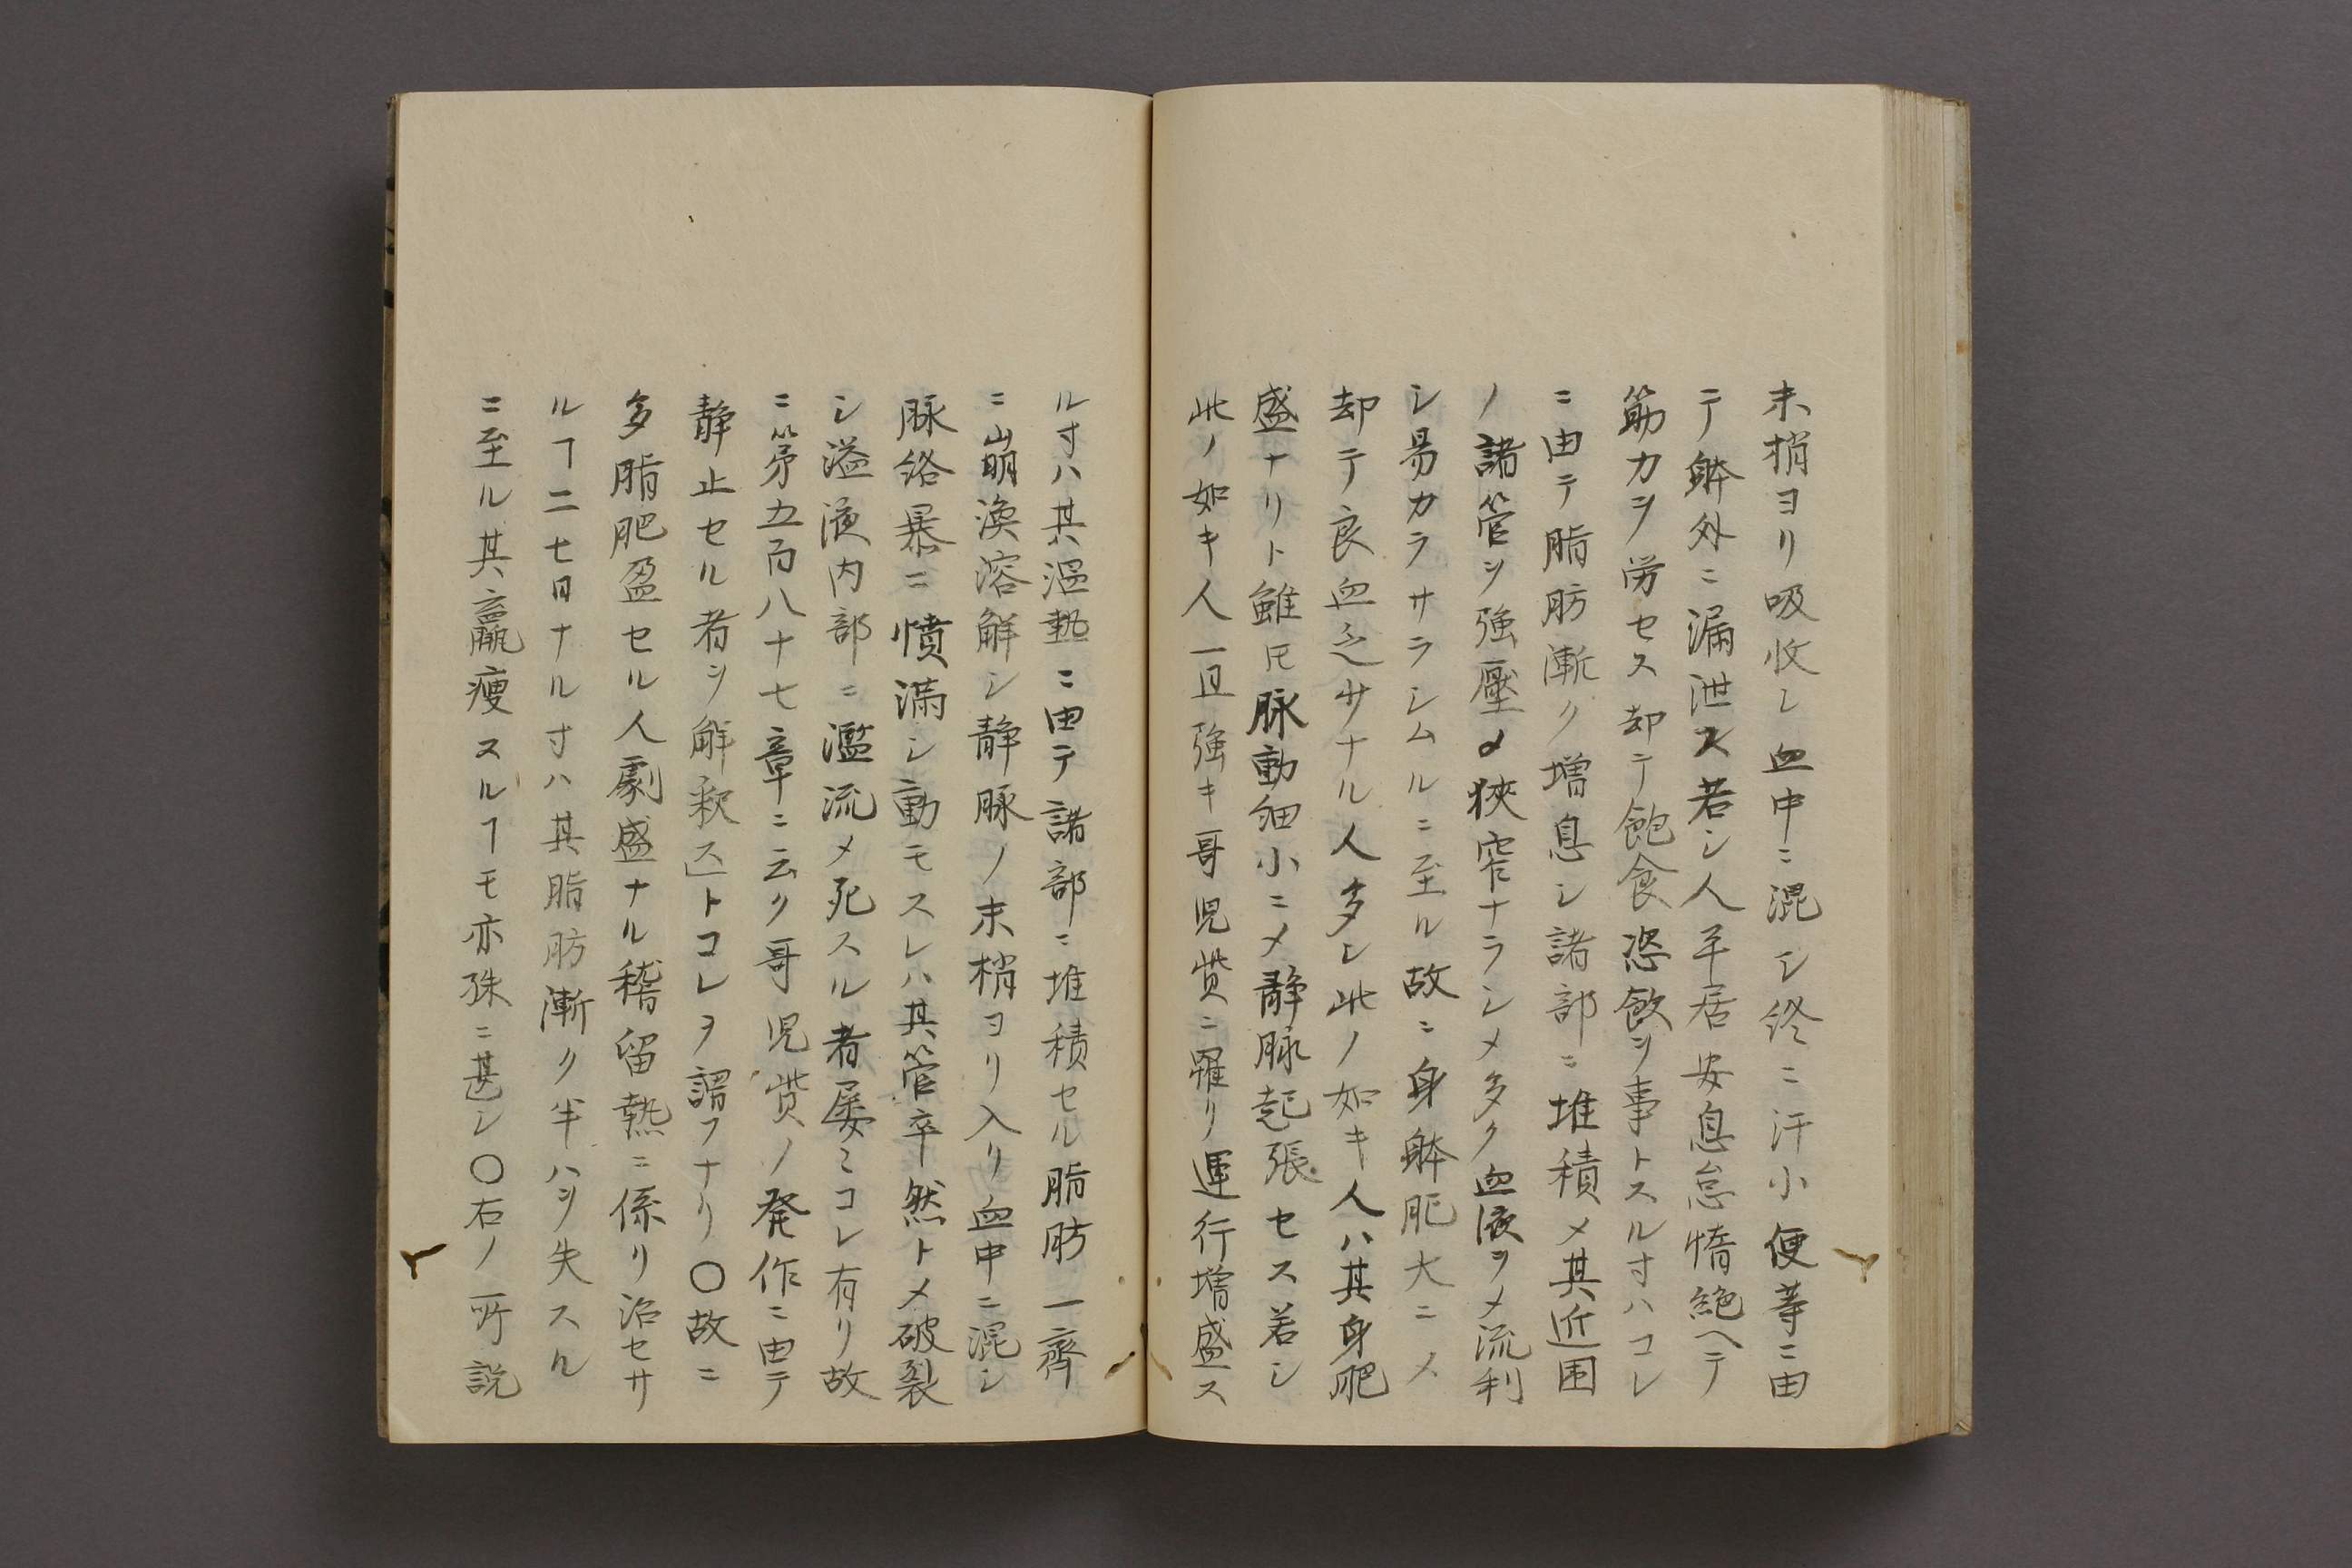 末梢ヨリ吸收シ血中ニ混シ終ニ汗小便等ニ由
テ躰外ニ漏泄ス若シ人平居安息怠惰絶ヘテ
筋力ヲ労セス却テ飽食恣飲ヲ事トスル寸ハコレ
ニ由テ脂肪漸ク増息シ諸部ニ堆積メ其近囲
ノ諸管ヲ強壓メ狹窄ナラシメ多ク血液ヲメ流利
シ易カラサラシムルニ至ル故ニ身躰肥大ニメ
却テ良血乏サナル人多シ此ノ如キ人ハ其身肥
盛ナリト雖𪜈脉動細小ニメ静脉起張セス若シ
此ノ如キ人一旦強キ哥児贤ニ罹リ運行増盛ス
ル寸ハ其温𤍠ニ由テ諸部ニ堆積セル脂肪一齊
ニ崩渙溶解シ静脉ノ末梢ヨリ入リ血中ニ混シ
脉絡暴ニ憤満シ動モスレハ其管卒然トメ破裂
シ溢液内部ニ濫流メ死スル者屡〻コレ有リ故
ニ第五百八十七章ニ云ク哥児贤ノ発作ニ由テ
静止セル者ヲ解釈ス」トコレヲ謂フナリ〇故ニ
多脂肥盈セル人劇盛ナル稽留熱ニ係リ治セサ
ルヿ二七日ナル寸ハ其脂肪漸ク半ハヲ失スル
ニ至ル其羸痩スルヿモ亦殊ニ甚シ〇右ノ所説